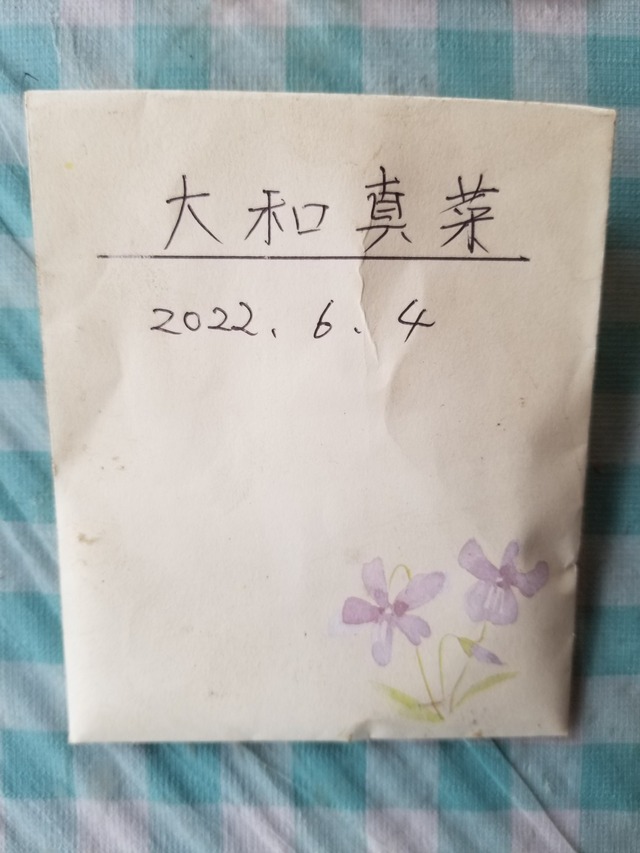 大和真菜
2022.6.4